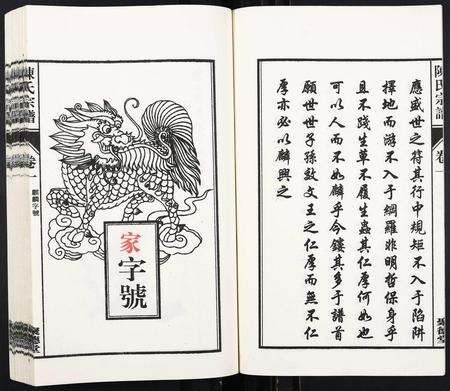 應盛世之符其行中規矩不入于陷阱
擇地而游不入于網羅非明哲保身乎
且不踐生草不履生蟲其仁厚何如也
可以人而不如麟乎今鏤其多于譜首
願世世子孫敦文王之仁厚而無不仁
厚亦必以麟興之
陳氏宗譜
卷一
家字號
陳氏宗譜
卷一
麒麟字號
聚德堂